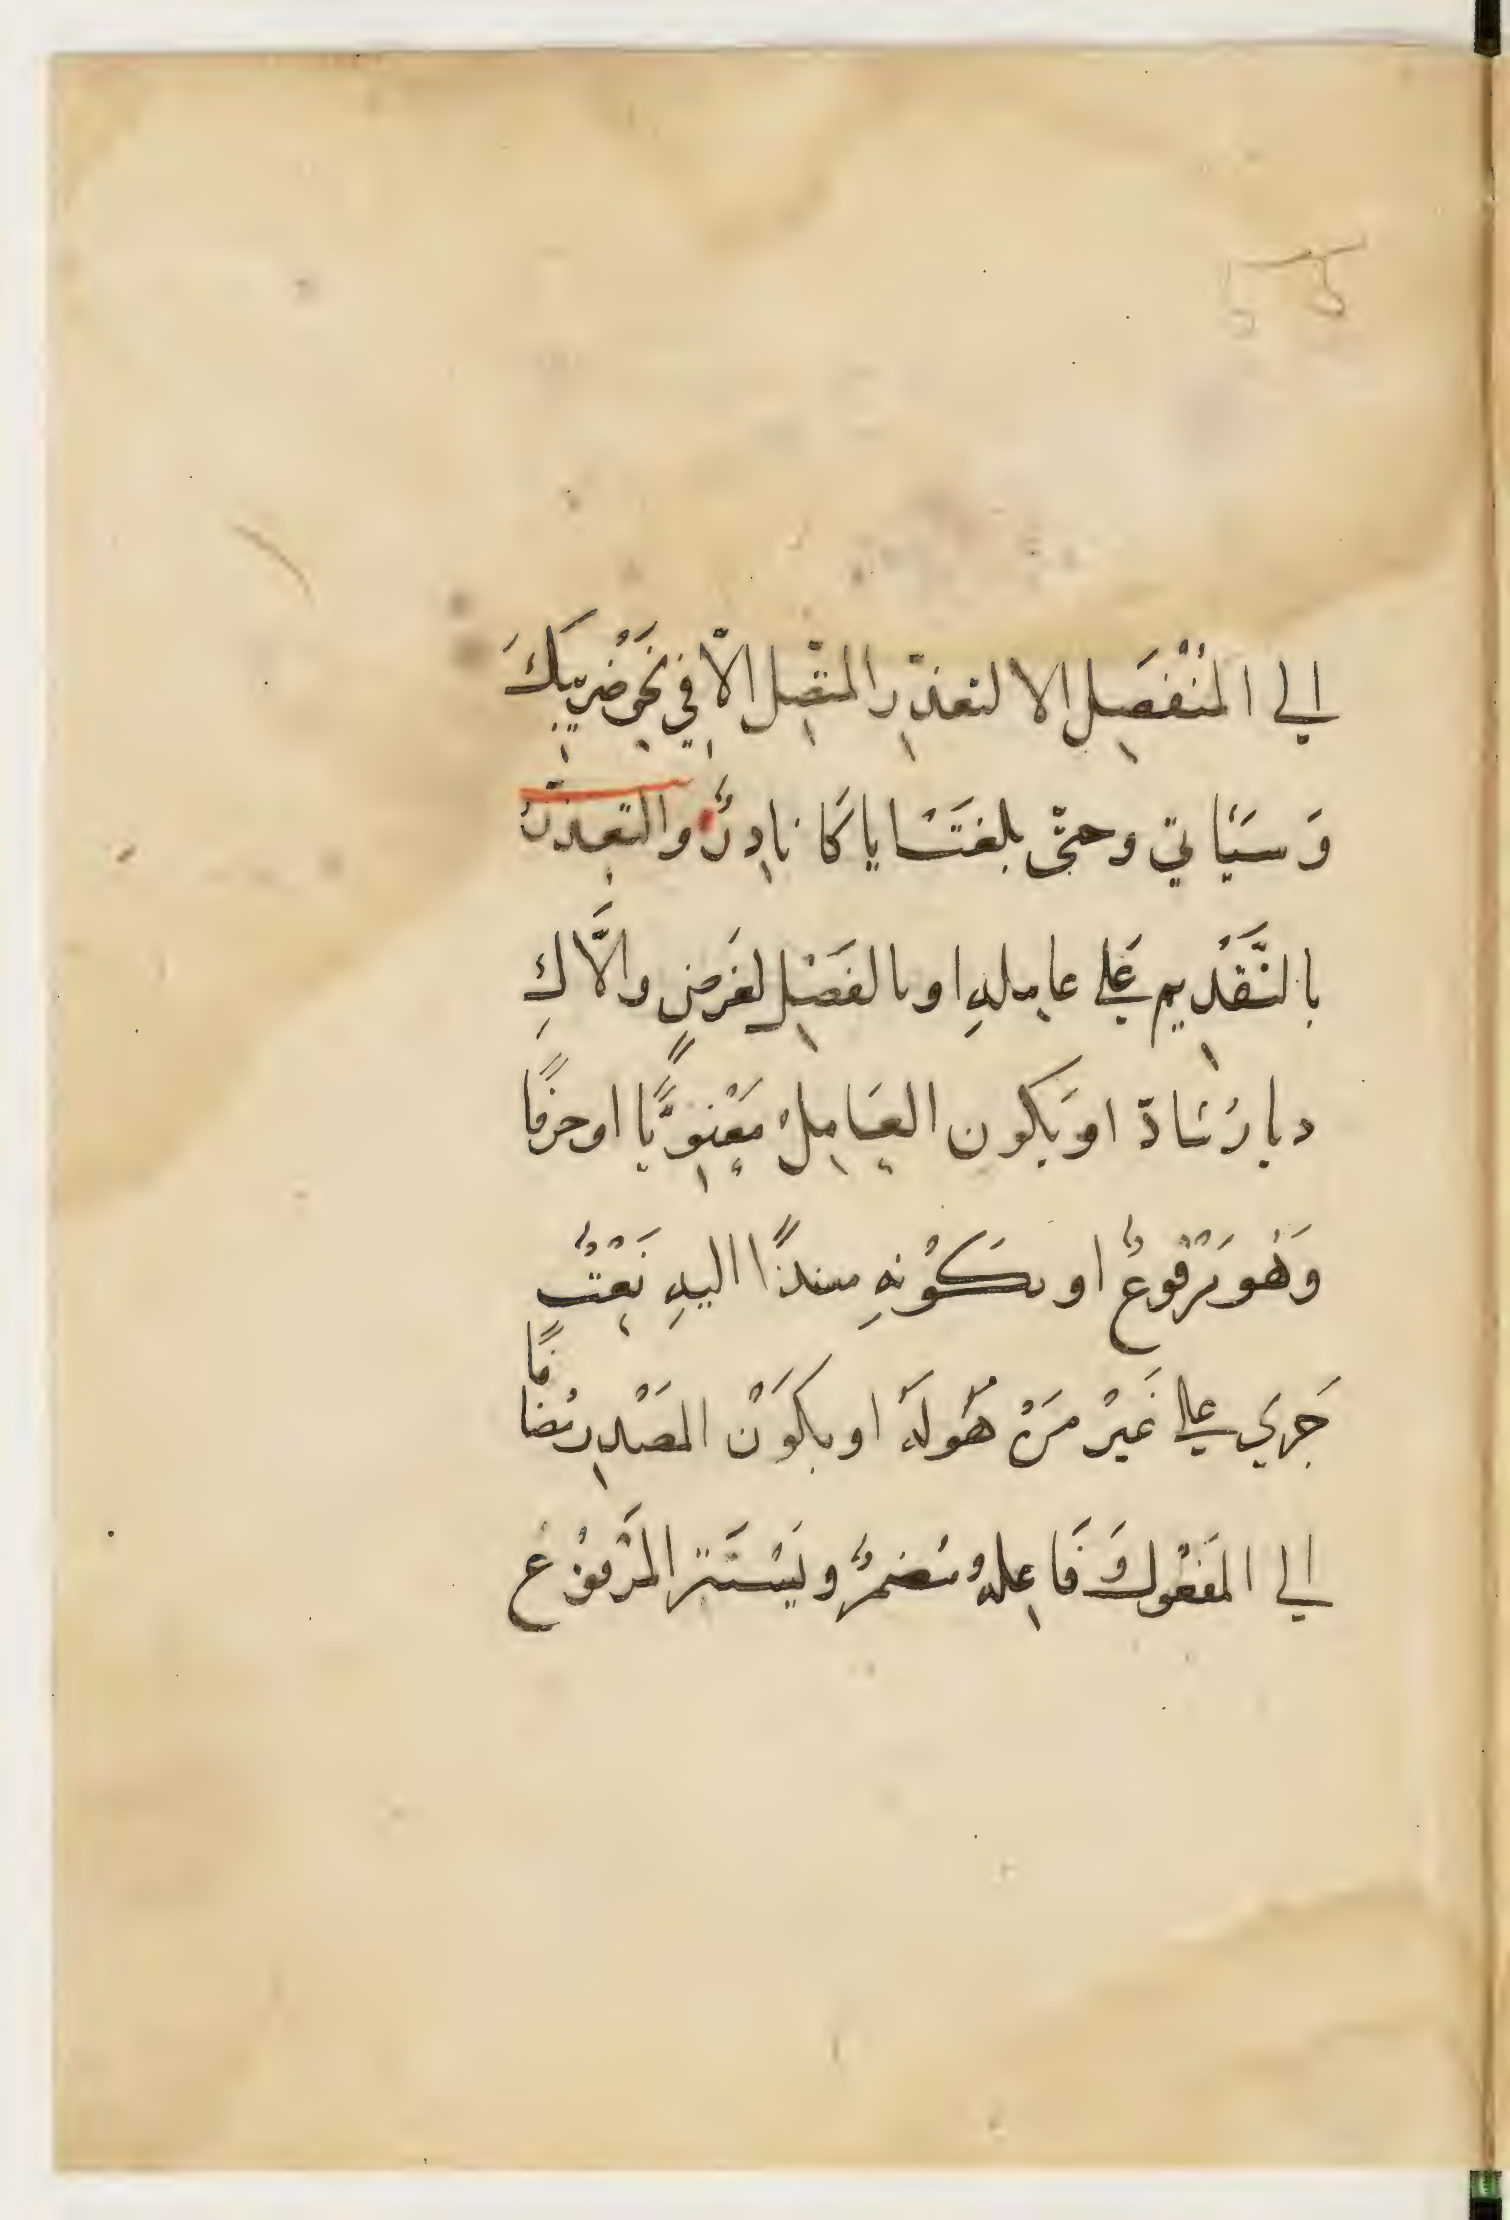 الي المُنْفَصِل الا لتعذّر المتّصِل الاّ في نَحْو ضَرْبيكَ
وَسَيَأتي وحتّى بلغَتْ اياكَا نادِرٌ والتعذّرُ
بالتَّقْدِيم عَلي عامِلهِ او بالفَصْل لغَرَضٍ والاَّ كِ
ديارُنَا دّ او يَكون العَامِلُ مَعْنوِيًّا او حرفًا
وَهُو مَرْفوعٌ او بكَوْنهِ مسندًا اليهِ نَعْتٌ
جَرَي علي غَيْر مَنْ هُوَ لَهُ او بكَوْن المَصْدرِ مُضافًا
الي المَفعُول وَفَاعِلهُ مُضمرٌ ويَسْتَتر المَرْفوُع